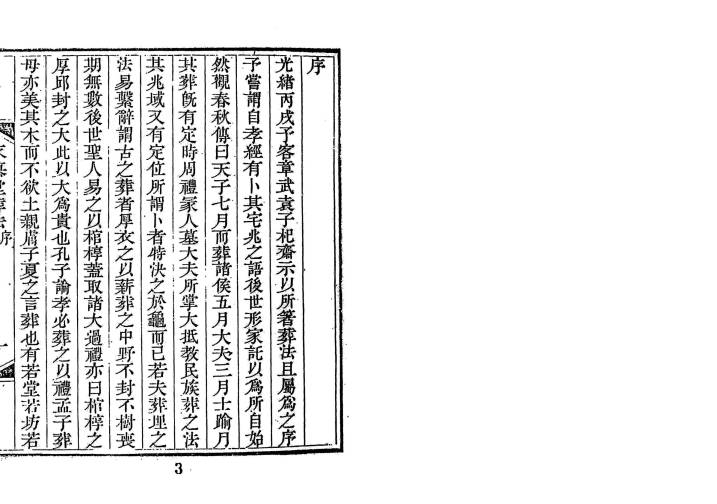 序
光緒丙戌予客章武袁子杞齋示以所著葬法且屬爲之序
予嘗謂自孝經有卜其宅兆之語後世形家託以爲所自始
然觀春秋傳曰天子七月而葬諸侯五月大夫三月士踰月
其葬旣有定時周禮冢人墓大夫所掌大抵教民族葬之法
其兆域又有定位所謂卜者特決之於龜而已若夫葬埋之
法易繫辭謂古之葬者厚衣之以薪葬之中野不封不樹喪
期無數後世聖人易之以棺椁蓋取諸大過禮亦曰棺椁之
厚邱封之大此以大爲貴也孔子論孝必葬之以禮孟子葬
母亦美其木而不欲土親膚子夏之言葬也有若堂若坊若
序
3